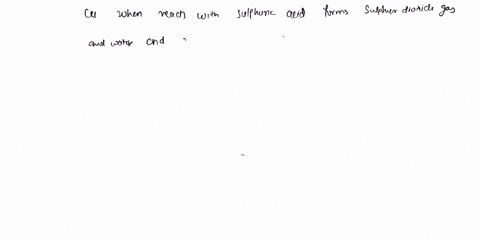 Cu when reach with sulphuric acid forms sulphur dioxide gas
and water and